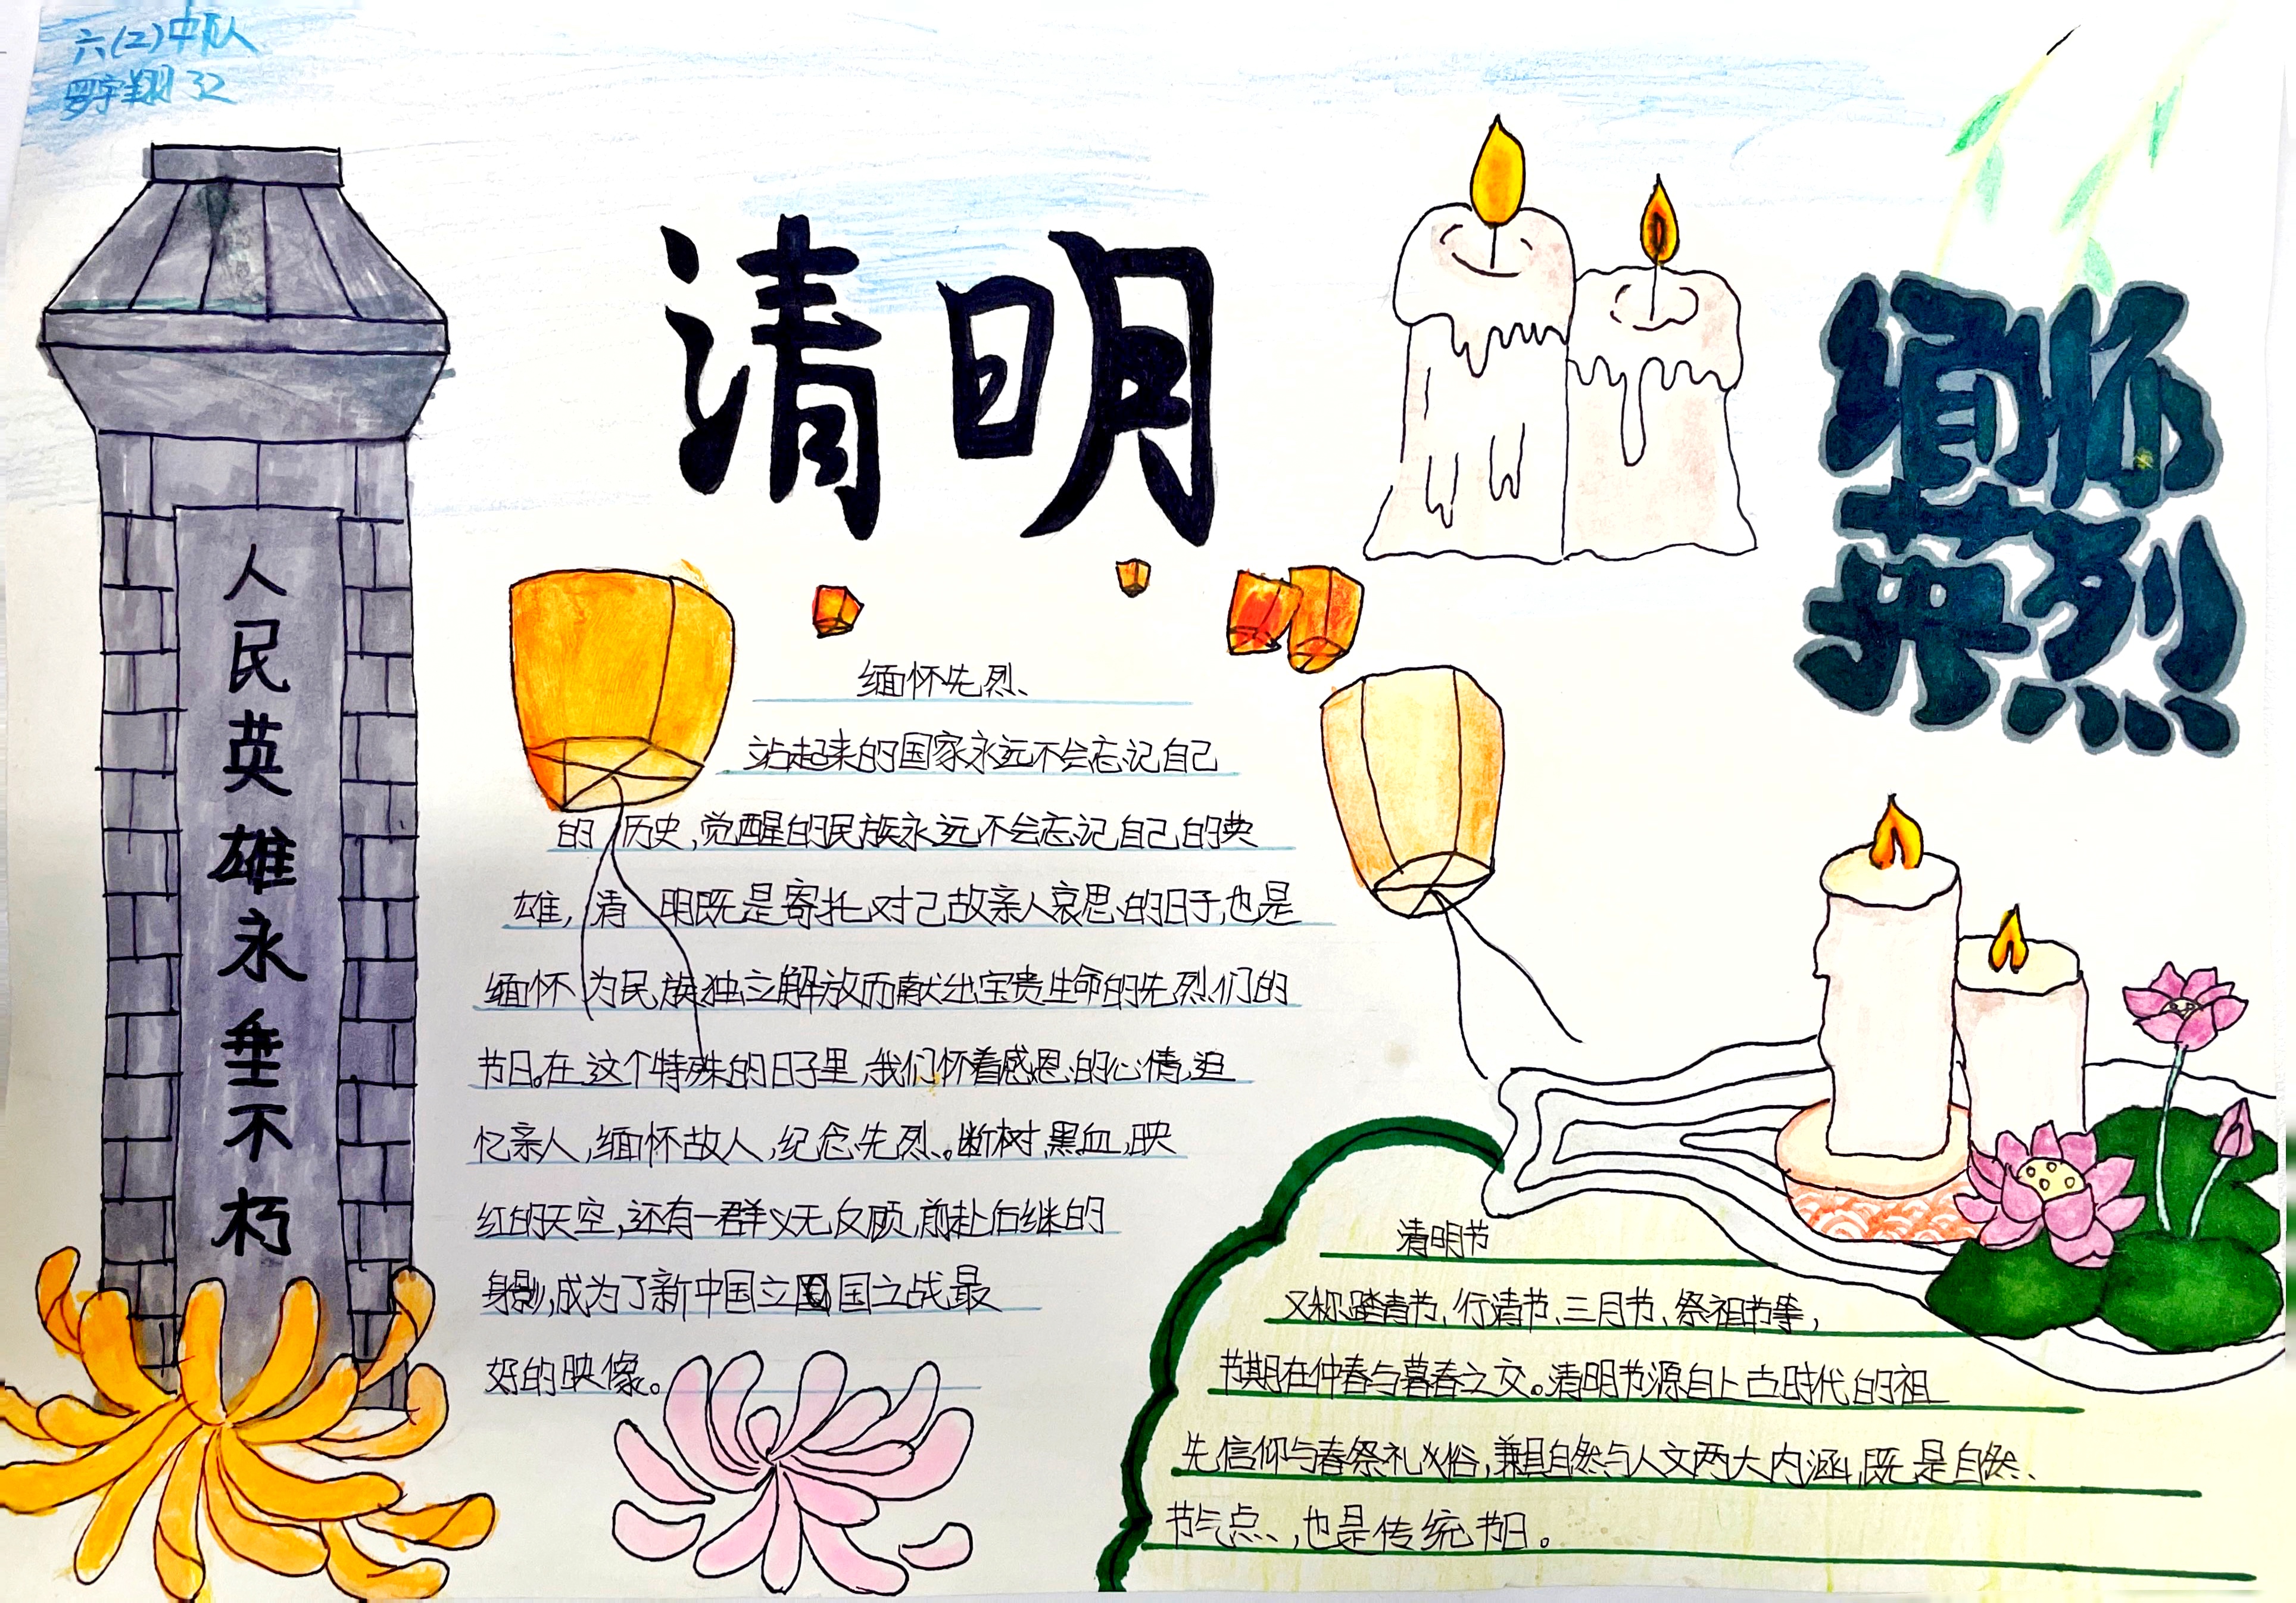 六(2)中队
罗宇翔 32
清明
缅怀
英烈
人民英雄永垂不朽
缅怀先烈、
站起来的国家永远不会忘记自己
的历史,觉醒的民族永远不会忘记自己的英
雄,清明既是寄托对己故亲人哀思的日子,也是
缅怀为民族独立解放而献出宝贵生命的先烈们的
节日。在这个特殊的日子里,我们怀着感恩的心情,追
忆亲人,缅怀故人,纪念先烈。断树,黑血,映
红的天空,还有一群义无反顾,前赴后继的
身影,成为了新中国立国之战最
好的映像。
清明节
又称踏青节、行清节、三月节、祭祖节等,
节期在仲春与暮春之交。清明节源自上古时代的祖
先信仰与春祭礼俗,兼具自然与人文两大内涵,既是自然、
节气点、,也是传统节日。